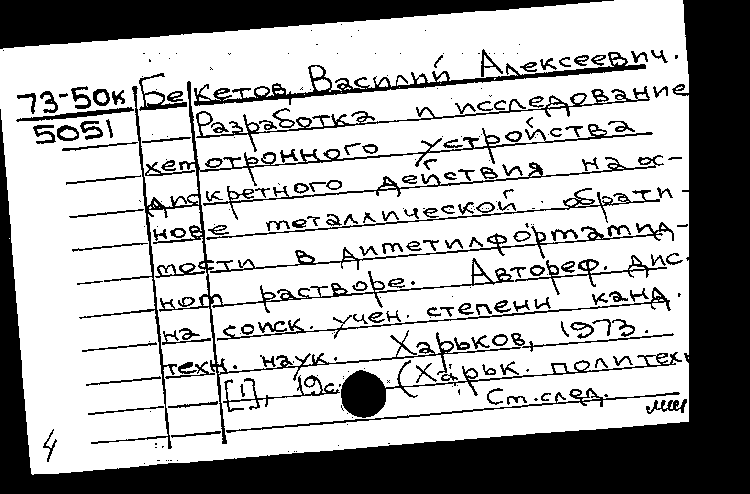 73-50к Бекетов, Василий Алексеевич.
5051 Разработка и исследование
хемотронного устройства
дискретного действия на ос-
нове металлической обрати-
мости в диметилформамид-
ном растворе. Автореф. дис.
на соиск. учен. степени канд.
техн. наук. Харьков, 1973.
[1], 19с (Харьк. политехн
Ст. след.
4